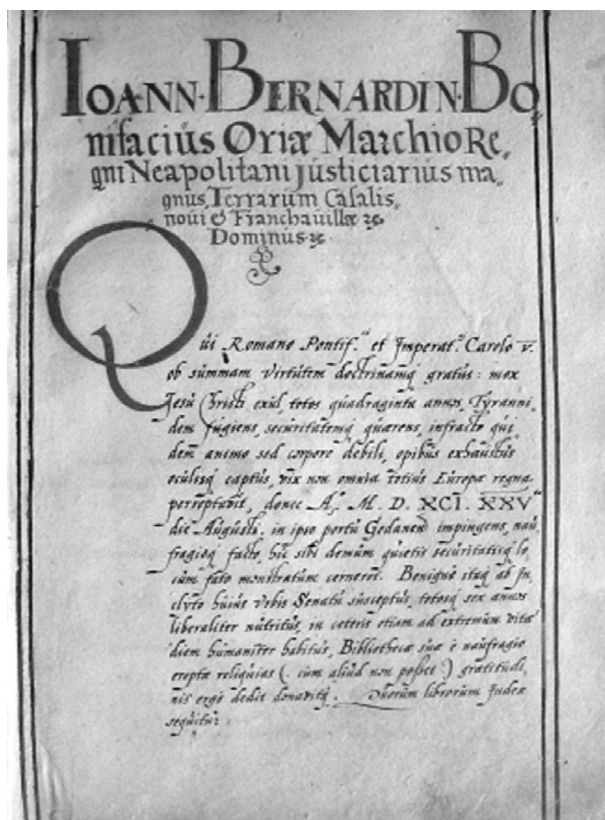 IOANN· BERNARDIN· BO„
nifacius Oriæ Marchio Re„
gni Neapolitani justiciarius ma„
gnus, Terrarum Casalis„
noui & Franchauillæ &c
Dominus &c
Qui Romano Pontif. et Imperat. Carolo V.
ob summam virtutem doctrinamq gratus: mox
Jesu Christi exul, totos quadraginta annos, Tyranni„
dem fugiens, securitatemq quærens, infracto qui
dem animo sed corpore debili, opibus exhaustus
oculisq captus, vix non omnia totius Europæ regna
perreptauit, donec A. M. D. XCI. XXV
die Augusti. in ipso portu Gedanen impingens, nau„
fragioq facto, hic sibi demum quietis securitatisq lo„
cum fato monstratum cerneret. Benigne itaq ab In„
clyto huius Vrbis Senatu susceptus, totosq sex annos
liberaliter nutritus, in ceteris etiam ad extremum vitæ
diem humaniter habitus, Bibliothecæ suæ è naufragio
ereptæ reliquias (. cum aliud non posset ) gratitudi„
nis ergo dedit donavitq. Quorum librorum Index
sequitur: